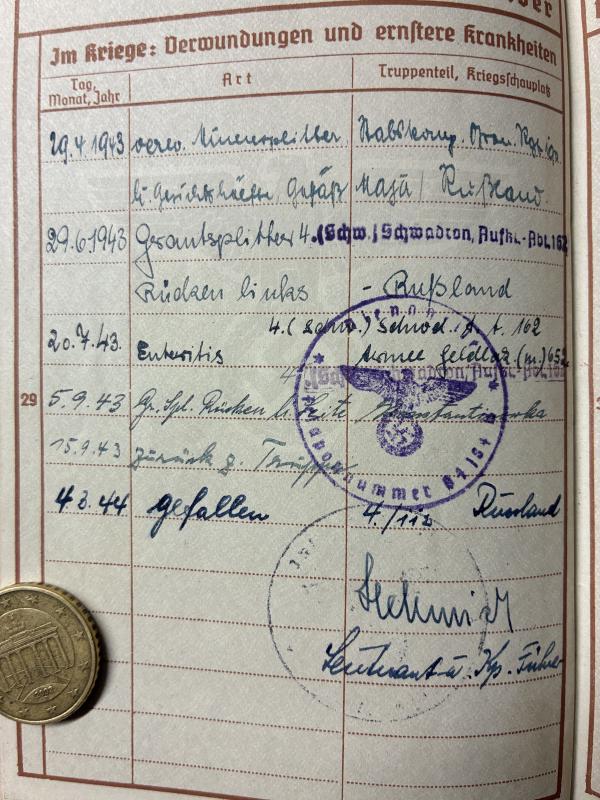 Im Kriege: Verwundungen und ernstere Krankheiten
Tag, Monat, Jahr
Art
Truppenteil, Kriegsschauplatz
29.4.1943 verw. Minensplitter Stabskomp. Gren. Rgt.
li. Gesichtshälfte, Gesäß Rußland.
29.6.1943 Granatsplitter 4.(Schw.) Schwadron, Aufkl.-Abt. 162
Rücken links - Rußland
4.(schw.) Schwd. A. A. 162
20.7.43. Enteritis Armee Feldlaz. (m.) 652
29 5.9.43 Gr. Spl. Rücken li. Seite
15.9.43 zurück z. Truppe
4 3. 44 gefallen 4./112 Russland
Leutnant u. Kp. Führer